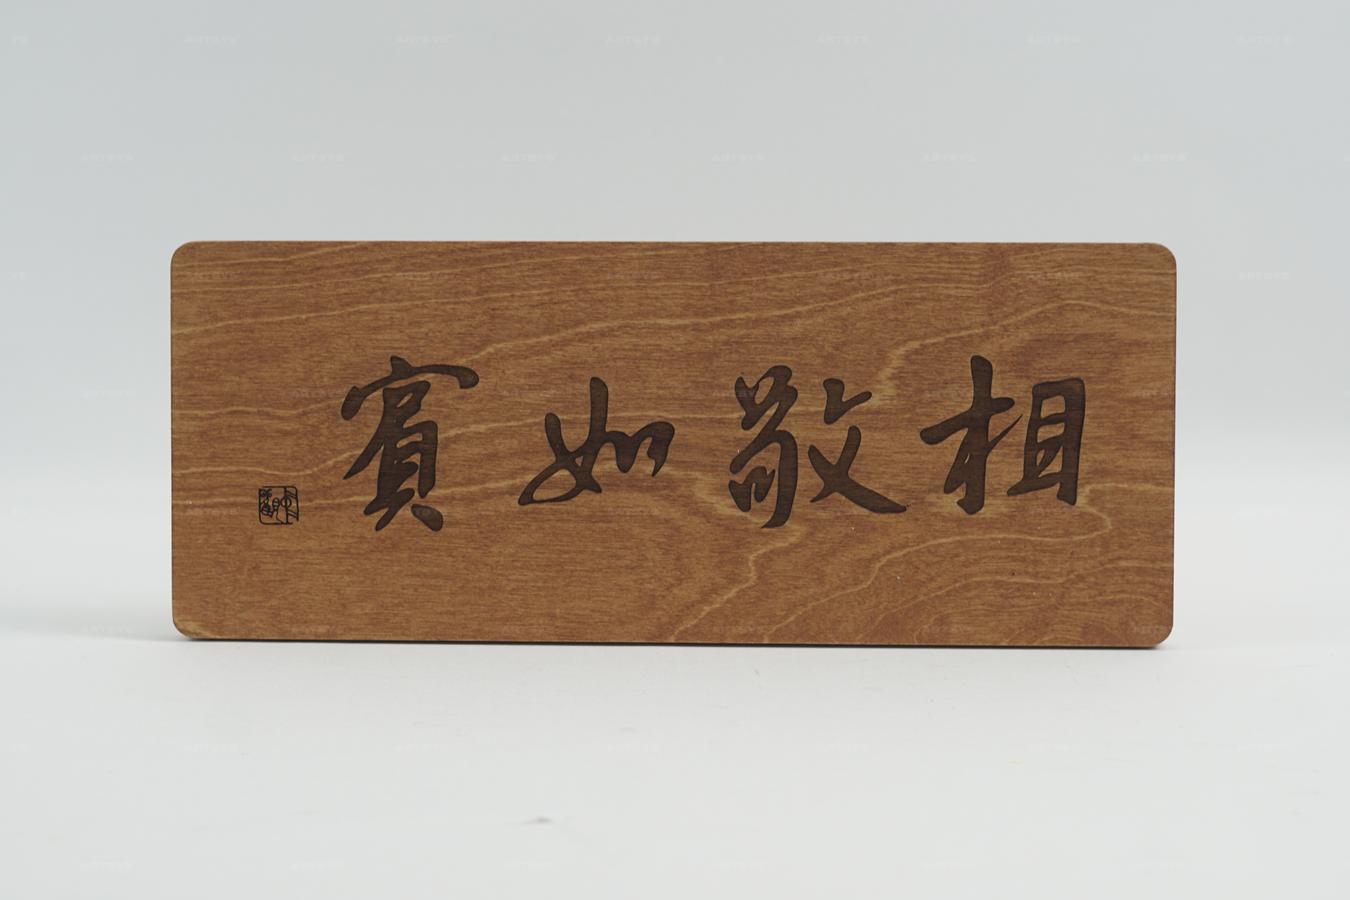 相敬如賓